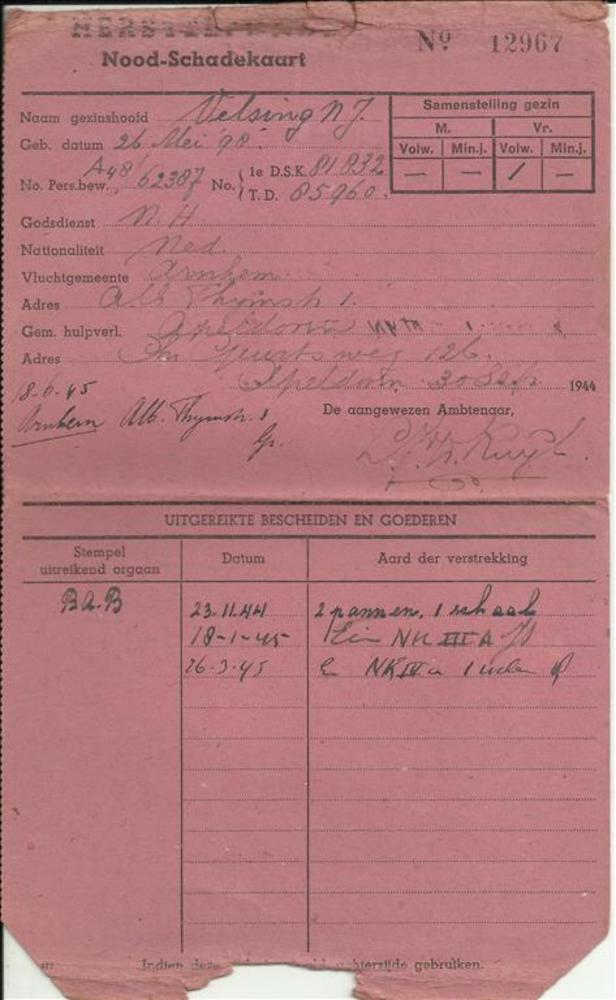 Nood-Schadekaart
Nº 12967
Naam gezinshoofd Velsing N J.
Geb. datum 26 Mei '98.
No. Pers.bew. A48/62387 No. 1e D.S.K. 81832
T.D. 85960.
Samenstelling gezin
M. Vr.
Volw. Min.j. Volw. Min.j.
— — / —
Godsdienst N.H.
Nationaliteit Ned.
Vluchtgemeente Arnhem.
Adres Alb. Thijmstr 1.
Gem. hulpverl. Apeldoorn
Adres weg 126.
Apeldoorn 30 Sept. 1944
18-6-45
Arnhem Alb. Thymstr. 1
De aangewezen Ambtenaar,
UITGEREIKTE BESCHEIDEN EN GOEDEREN
Stempel uitreikend orgaan
Datum
Aard der verstrekking
B.a.B 23.11.44 2 pannen, 1 schaal
18-1-45 NK III A
26-3-45 NK IV a
Indien deze achterzijde gebruiken.